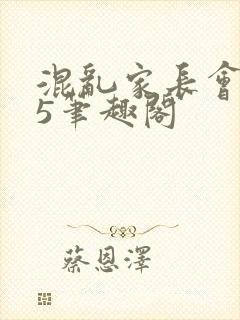 混亂家長會
5筆趣閣
蔡恩澤